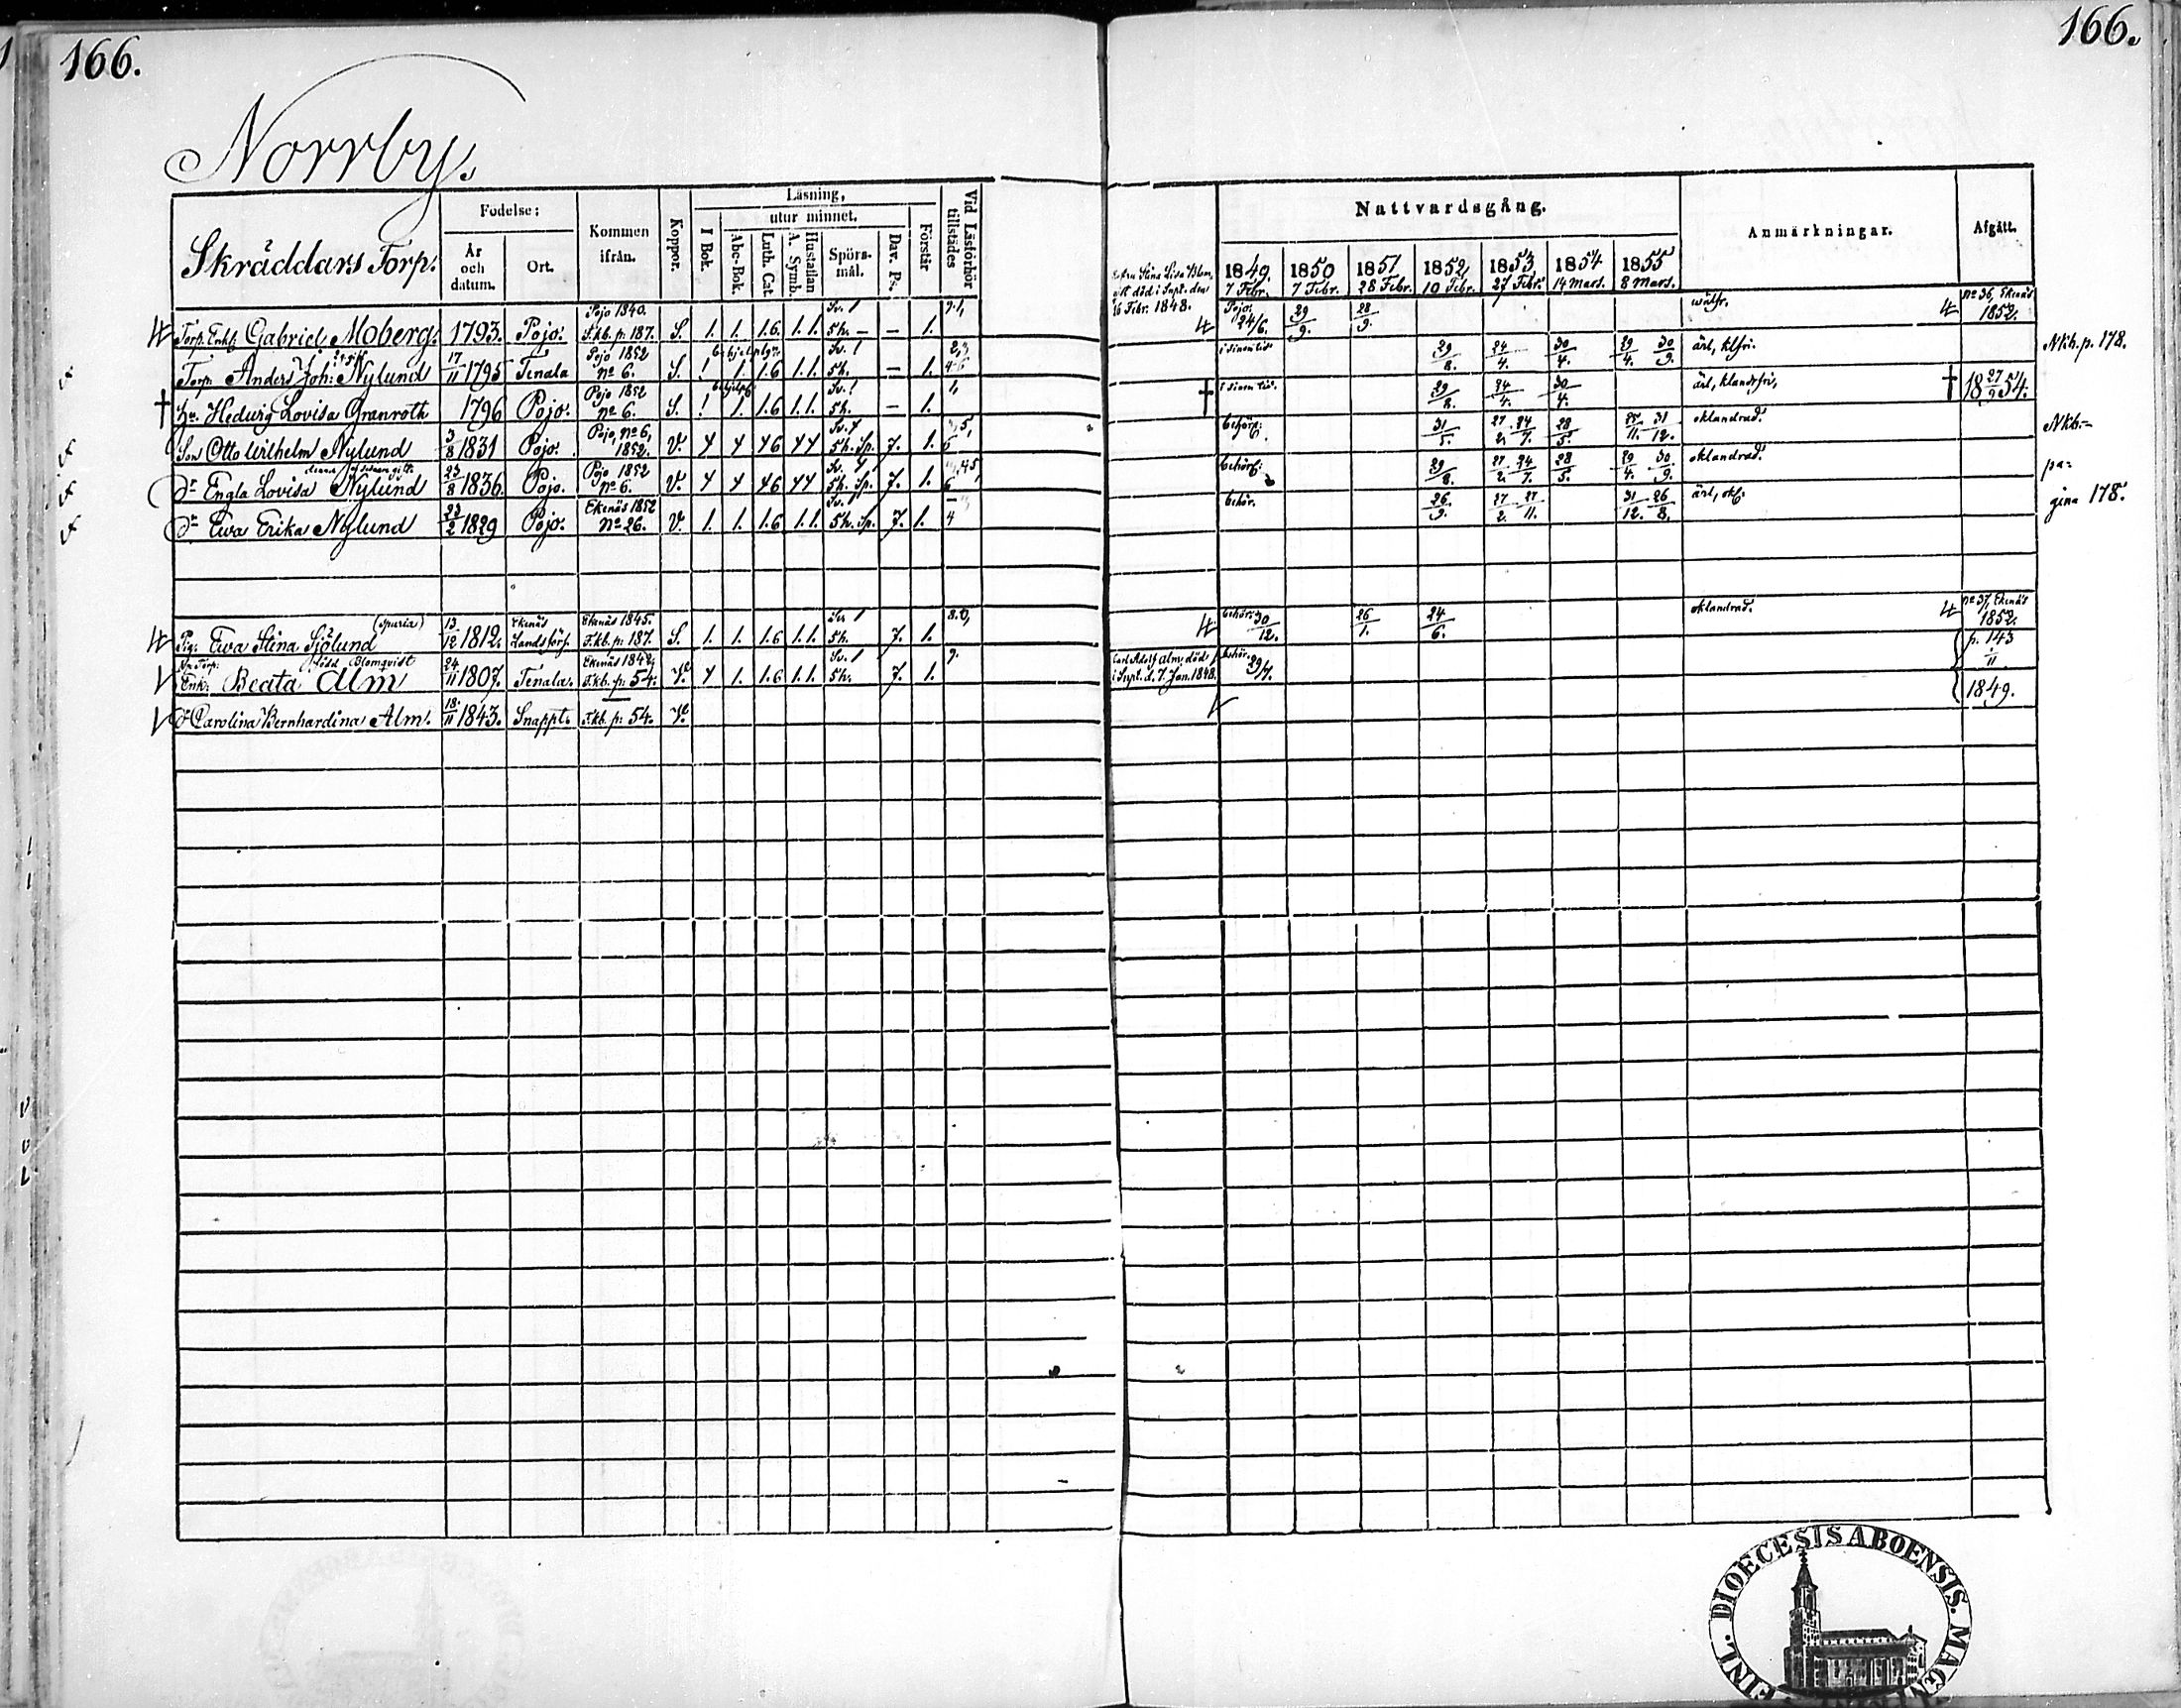 166.
166.
Norrby.
Skräddars Torp.
Födelse:
År och datum.
Ort.
Kommen ifrån.
Koppor.
Läsning,
utur minnet.
I Bok.
Abc-Bok.
Luth. Cat.
Hustaflan A. Symb.
Spörs-mål.
Dav. Ps.
Förstår
Vid Läsförhör tillstädes
Nattvardsgång.
1849. 7 Febr.
1850 7 Febr.
1851 28 Febr.
1852. 10 Febr.
1853. 27 Febr.
1854 14 Mars.
1855 8 Mars.
Anmärkningar.
Afgått.
Lisa Blom, död i
Febr. 1848.
Torp. Enkl. Gabriel Moberg. 1793. Pojo. Pojo 1840. F.kb. p. 187. S. 1. 1. 1.6. 1. 1. Sv. 1 5h. — — 1. Pojo. 24/6. 29/9. 28/9. wälfr. no 36, Ekenäs 1852.
Torp. Anders Joh: Nylund 17/11 1795 Tenala Pojo 1852 no 6. S. 1. 1.6 1. 1. Sv. 1 5h. — 1. 29/8. 24/4. 30/4. 29/4. 30/9. ärl, klfri. Nkb. p. 178.
† Hu. Hedvig Lovisa Granroth 1796 Pojo. Pojo 1852 no 6. S. 1. 1.6 1. 1. 5h. — 1. † 29/8. 24/4. 30/4. ärl, klandrfri, † 18 27/9 54.
Son Otto Wilhelm Nylund 3/8 1831 Pojo. Pojo, no 6, 1852. V. 5h. Sp. 7. 1. behörg: 31/5. 27/2. 24/7. 28/5. 25/11. 31/12. oklandrad. Nkb.—
Dr Engla Lovisa Nylund 23/8 1836. Pojo. Pojo 1852 no 6. V. 5h. Sp. 7. 1. behörg: 29/8. 27/2. 24/7. 28/5. 29/4. 30/9. oklandrad. pa=
Dr Ewa Erika Nylund 23/2 1829 Pojo. Ekenäs 1852 no 26. V. 1. 1. 1.6 1. 1. Sv. 1 5h. Sp. 7. 1. 4 behör. 26/9. 27/2. 27/11. 31/12. 26/8. ärl, okl. gina 178.
Pig. Ewa Stina Sjölund (spuria) 13/12 1812. Ekenäs Landsförs. Ekenäs 1845. F.kb. p. 187. S. 1. 1. 1.6 1. 1. 5h. 7. 1. behör: 30/12. 26/1. 24/6. oklandrad. no 37, Ekenäs 1852.
Enk: Beata Alm född Blomqvist 24/11 1807. Tenala. Ekenäs 1842; F.kb. p. 54. 1. 1.6 1. 1. Sv. 1 5h. 7. 1. 9. Carl Adolf Alm, död i Snpt. d. 7. Jan. 1848. behör. 29/7. p. 143 11
1849.
Dr Carolina Bernhardina Alm. 18/11 1843. Snappt. F.kb. p. 54.
DIOECESIS ABOENSIS. MAG
FINL.